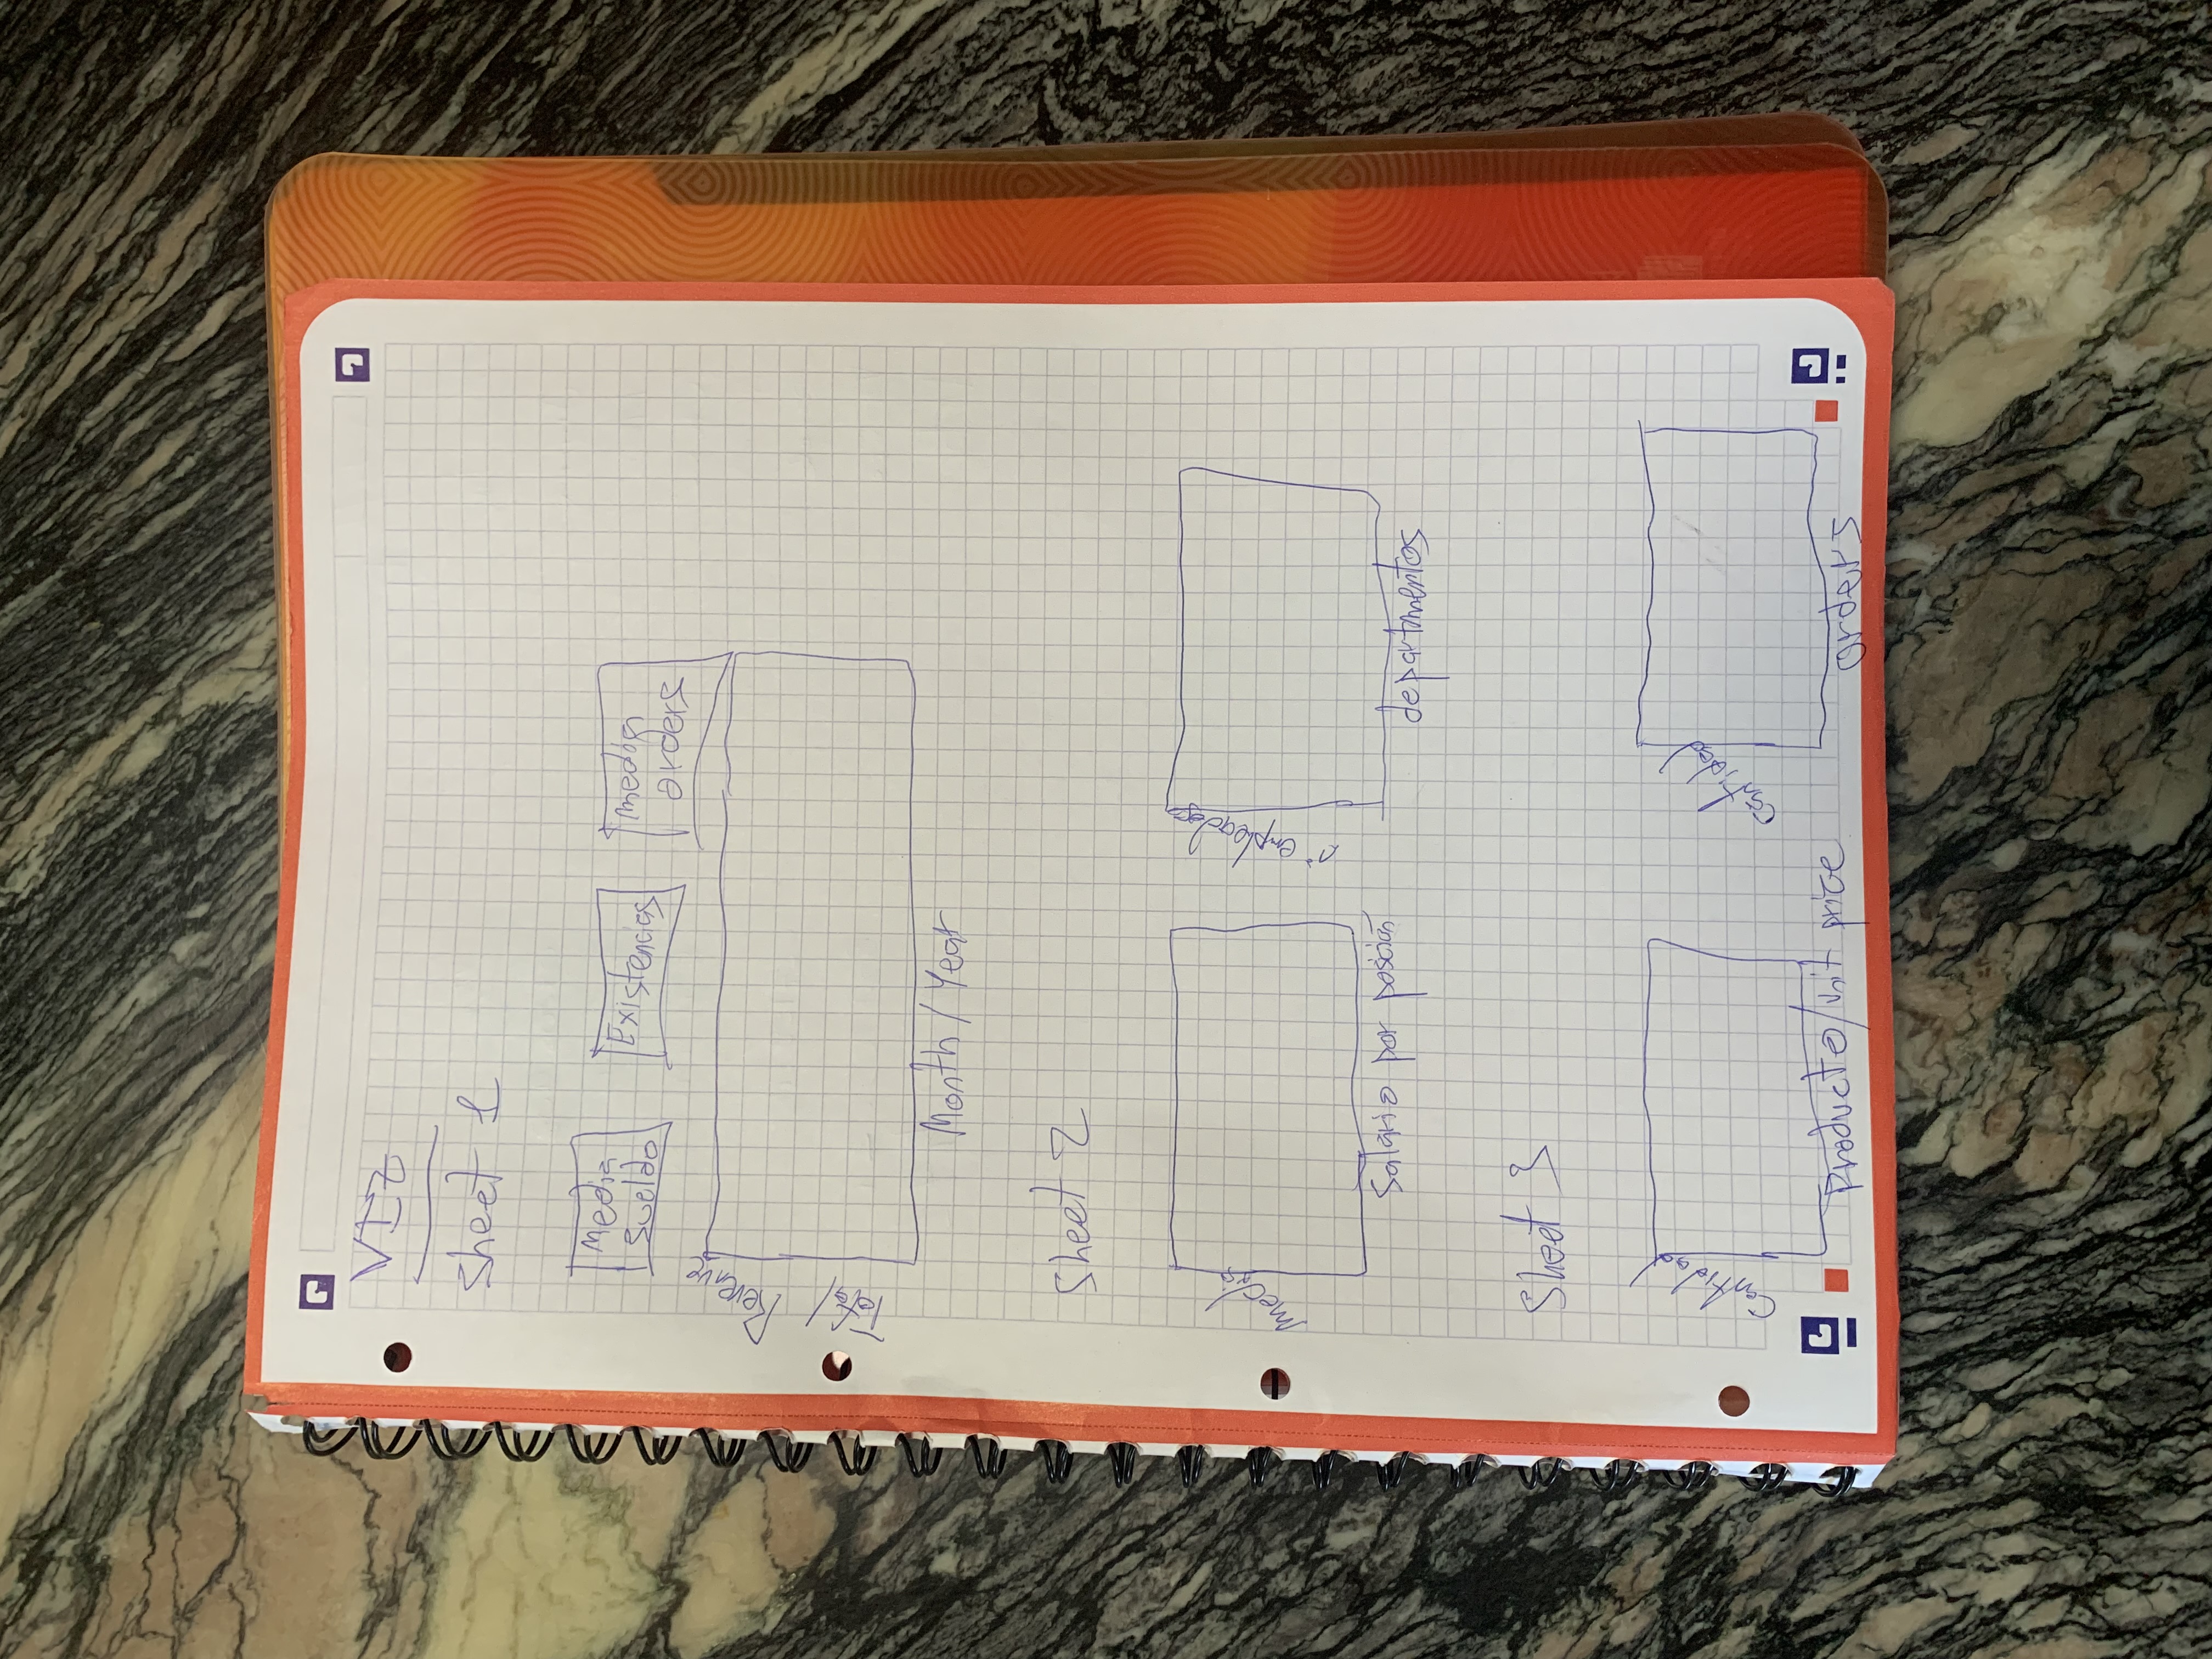 VIZ
Sheet 1
Media
sueldo
Existencias
media
orders
Total Revenue
Month / Year
Sheet 2
Media
Salario por posición
nº empleados
departamentos
Sheet 3
Cantidad
Producto/unit price
Cantidad
orders